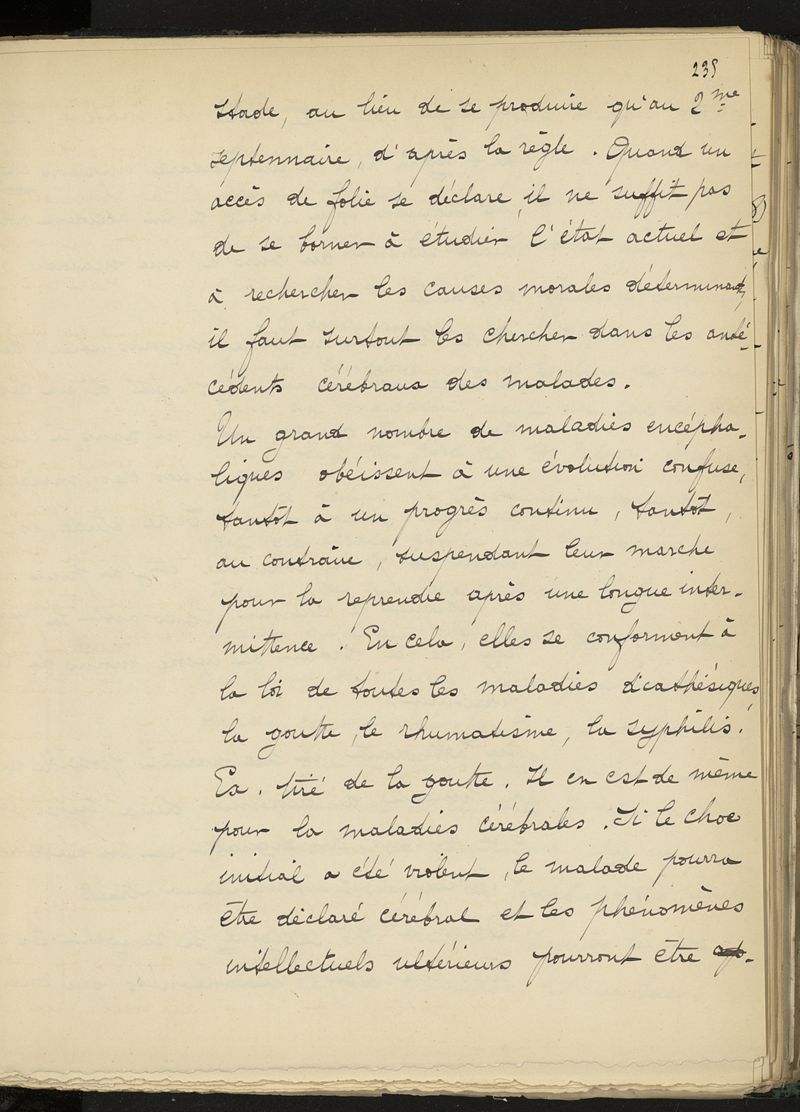 235
stade, au lieu de se produire qu'au 2me
septennaire, d'après la règle. Quand un
accès de folie se déclare, il ne suffit pas
de se borner à étudier l'état actuel et
à rechercher les causes morales déterminantes,
il faut surtout les chercher dans les anté-
cédents cérébraux des malades.
Un grand nombre de maladies encépha-
liques obéissent à une évolution confuse,
tantôt à un progrès continu, tantôt,
au contraire, suspendant leur marche
pour la reprendre après une longue inter-
mittence. En cela, elles se conforment à
la loi de toutes les maladies diathésiques,
la goutte, le rhumatisme, la syphilis.
Ex. tiré de la goutte. Il en est de même
pour la maladies cérébrales. Si le choc
initial a été violent, le malade pourra
être déclaré cérébral et les phénomènes
intellectuels ultérieurs pourront être